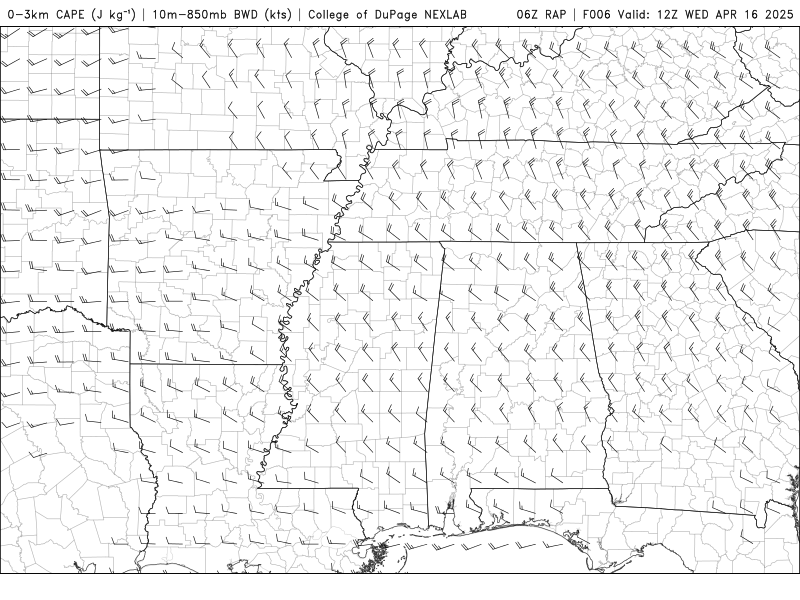 0-3km CAPE (J kg⁻¹) | 10m-850mb BWD (kts) | College of DuPage NEXLAB 06Z RAP | F006 Valid: 12Z WED APR 16 2025